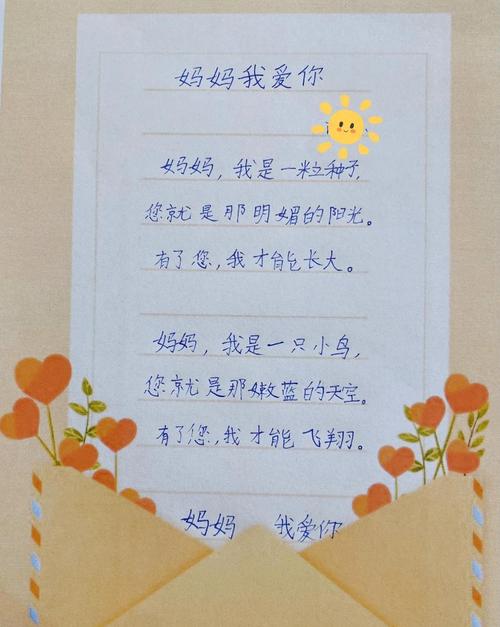 妈妈我爱你
妈妈，我是一粒种子，
您就是那明媚的阳光。
有了您，我才能长大。
妈妈，我是一只小鸟，
您就是那嫩蓝的天空。
有了您，我才能飞翔。
妈妈 我爱你